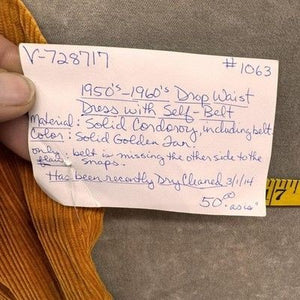 V-728717 #1063
1950's-1960's Drop Waist
Dress with Self-Belt
Material: Solid Cordoroy, including belt
Color: Solid Golden Tan
only: belt is missing the other side to the
snaps.
Has been recently Dry Cleaned 3/1/14
50.00 as is
7